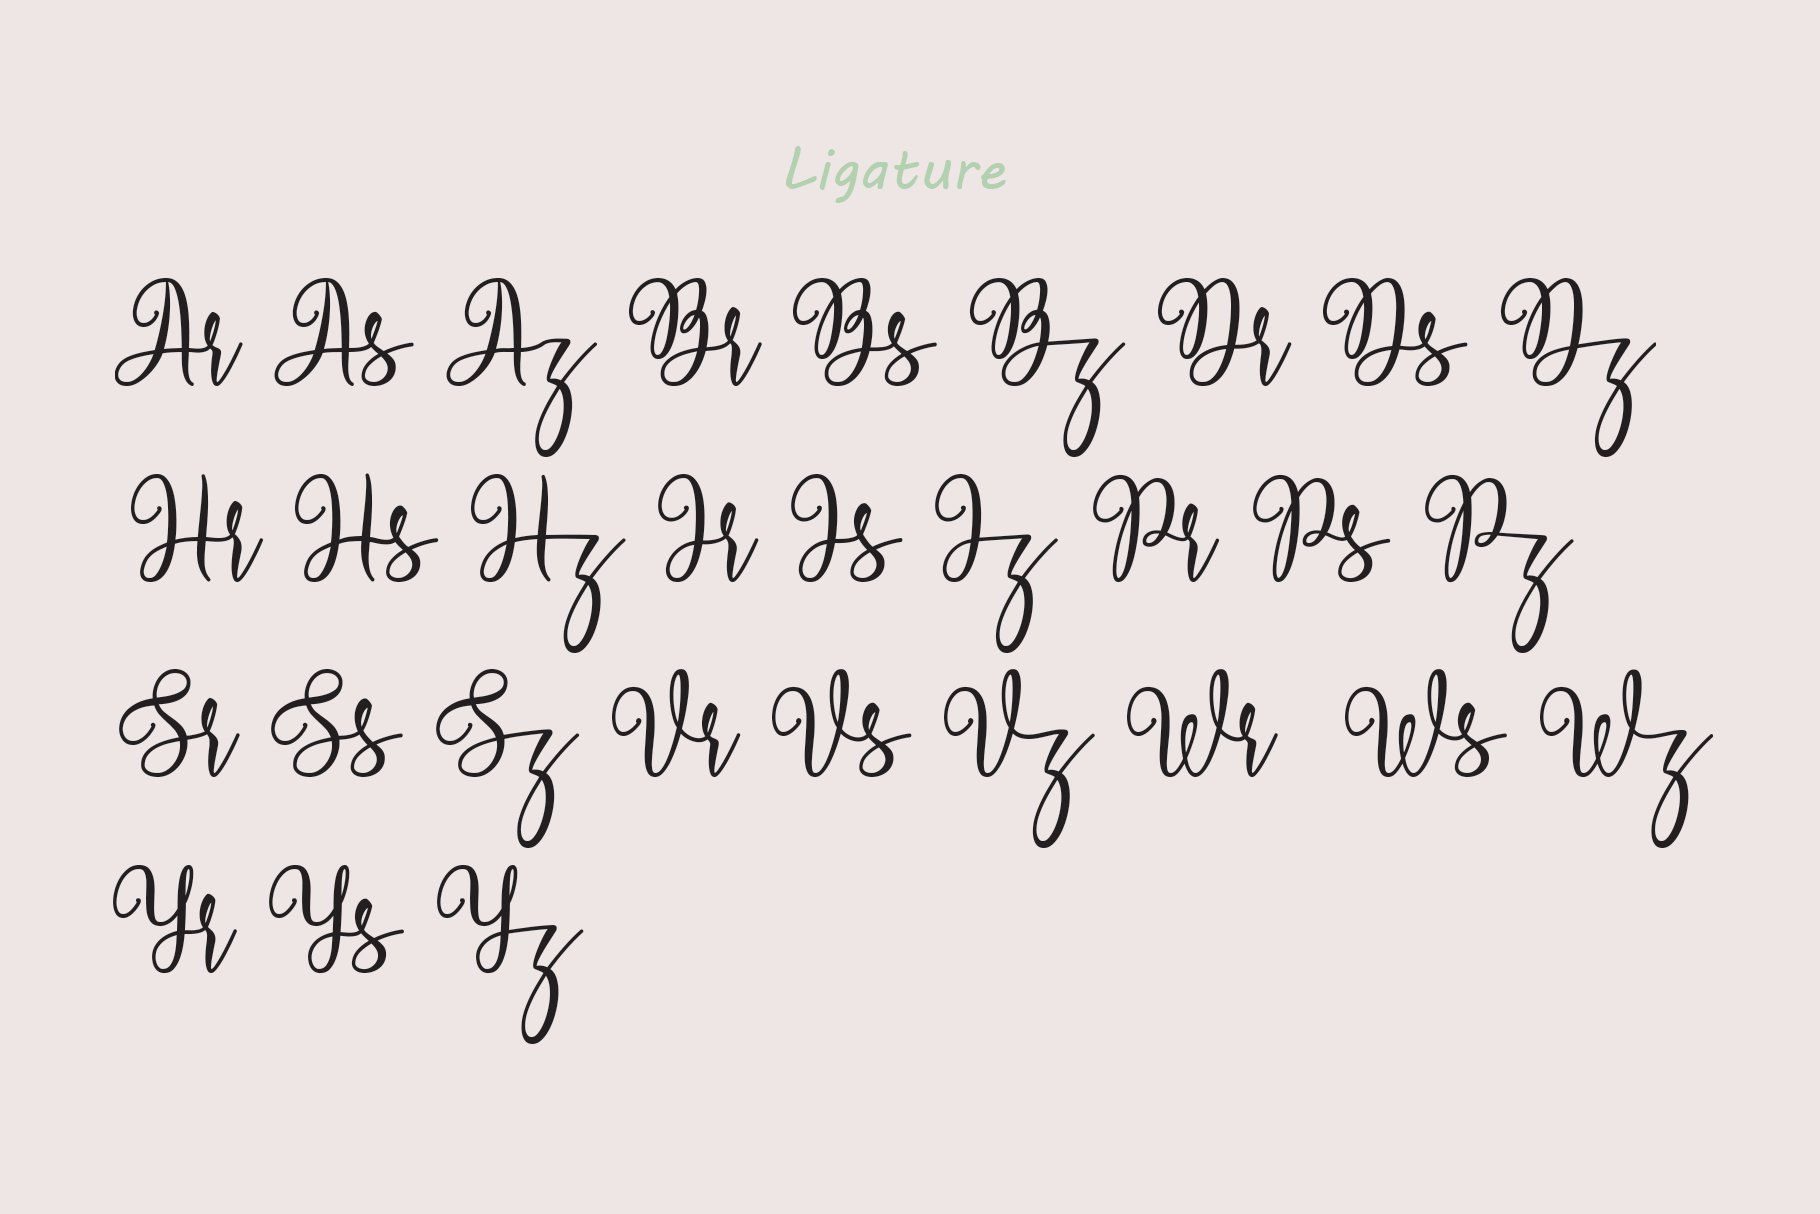 Ligature
Ar As Az Br Bs Bz Dr Ds Dz
Hr Hs Hz Ir Is Iz Pr Ps Pz
Sr Ss Sz Vr Vs Vz Wr Ws Wz
Yr Ys Yz